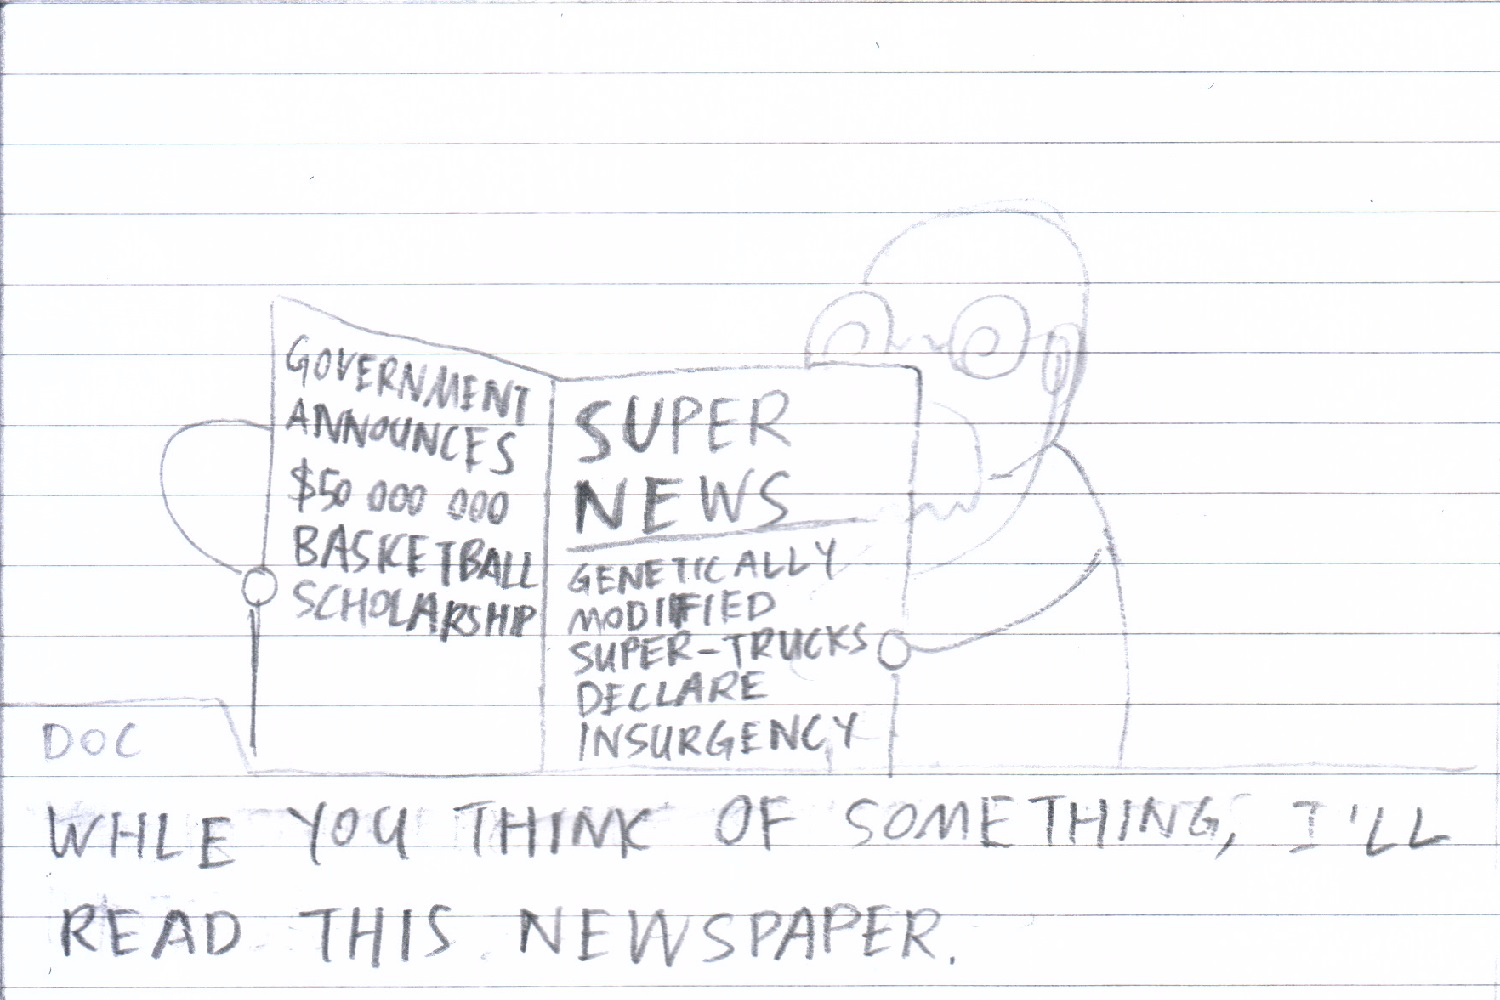 GOVERNMENT
ANNOUNCES
$50 000 000
BASKETBALL
SCHOLARSHIP
SUPER
NEWS
GENETICALLY
MODIFIED
SUPER-TRUCKS
DECLARE
INSURGENCY
DOC
WHLE YOU THINK OF SOMETHING, I'LL
READ THIS NEWSPAPER.